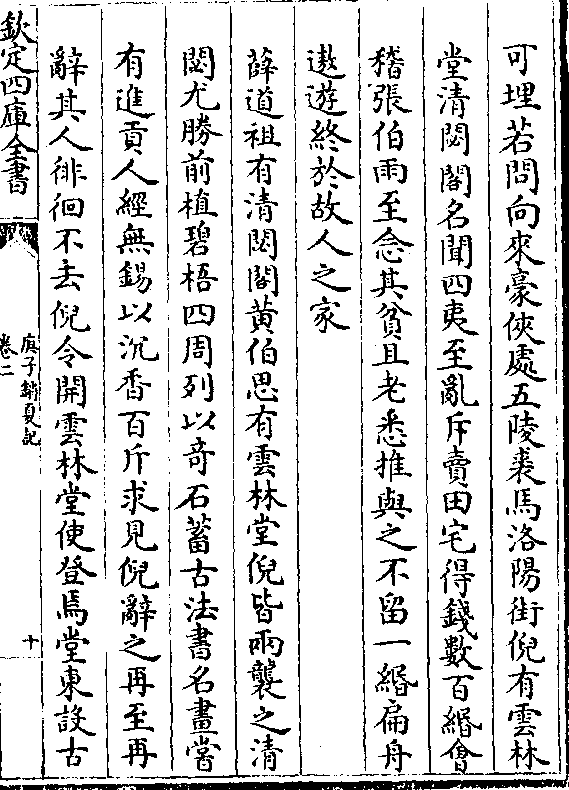 可埋若問向來豪俠處五陵裘馬洛陽街倪有雲林
堂清閟閣名聞四夷至亂斥賣田宅得錢數百緡會
稽張伯雨至念其貧且老悉推與之不留一緡扁舟
遨遊終於故人之家
薛道祖有清閟閣黃伯思有雲林堂倪皆兩襲之清
閟尤勝前植碧梧四周列以奇石蓄古法書名畫當
有進貢人經無錫以沉香百斤求見倪辭之再至再
辭其人徘徊不去倪令開雲林堂使登焉堂東設古
欽定四庫全書
庚子銷夏記
卷二
十